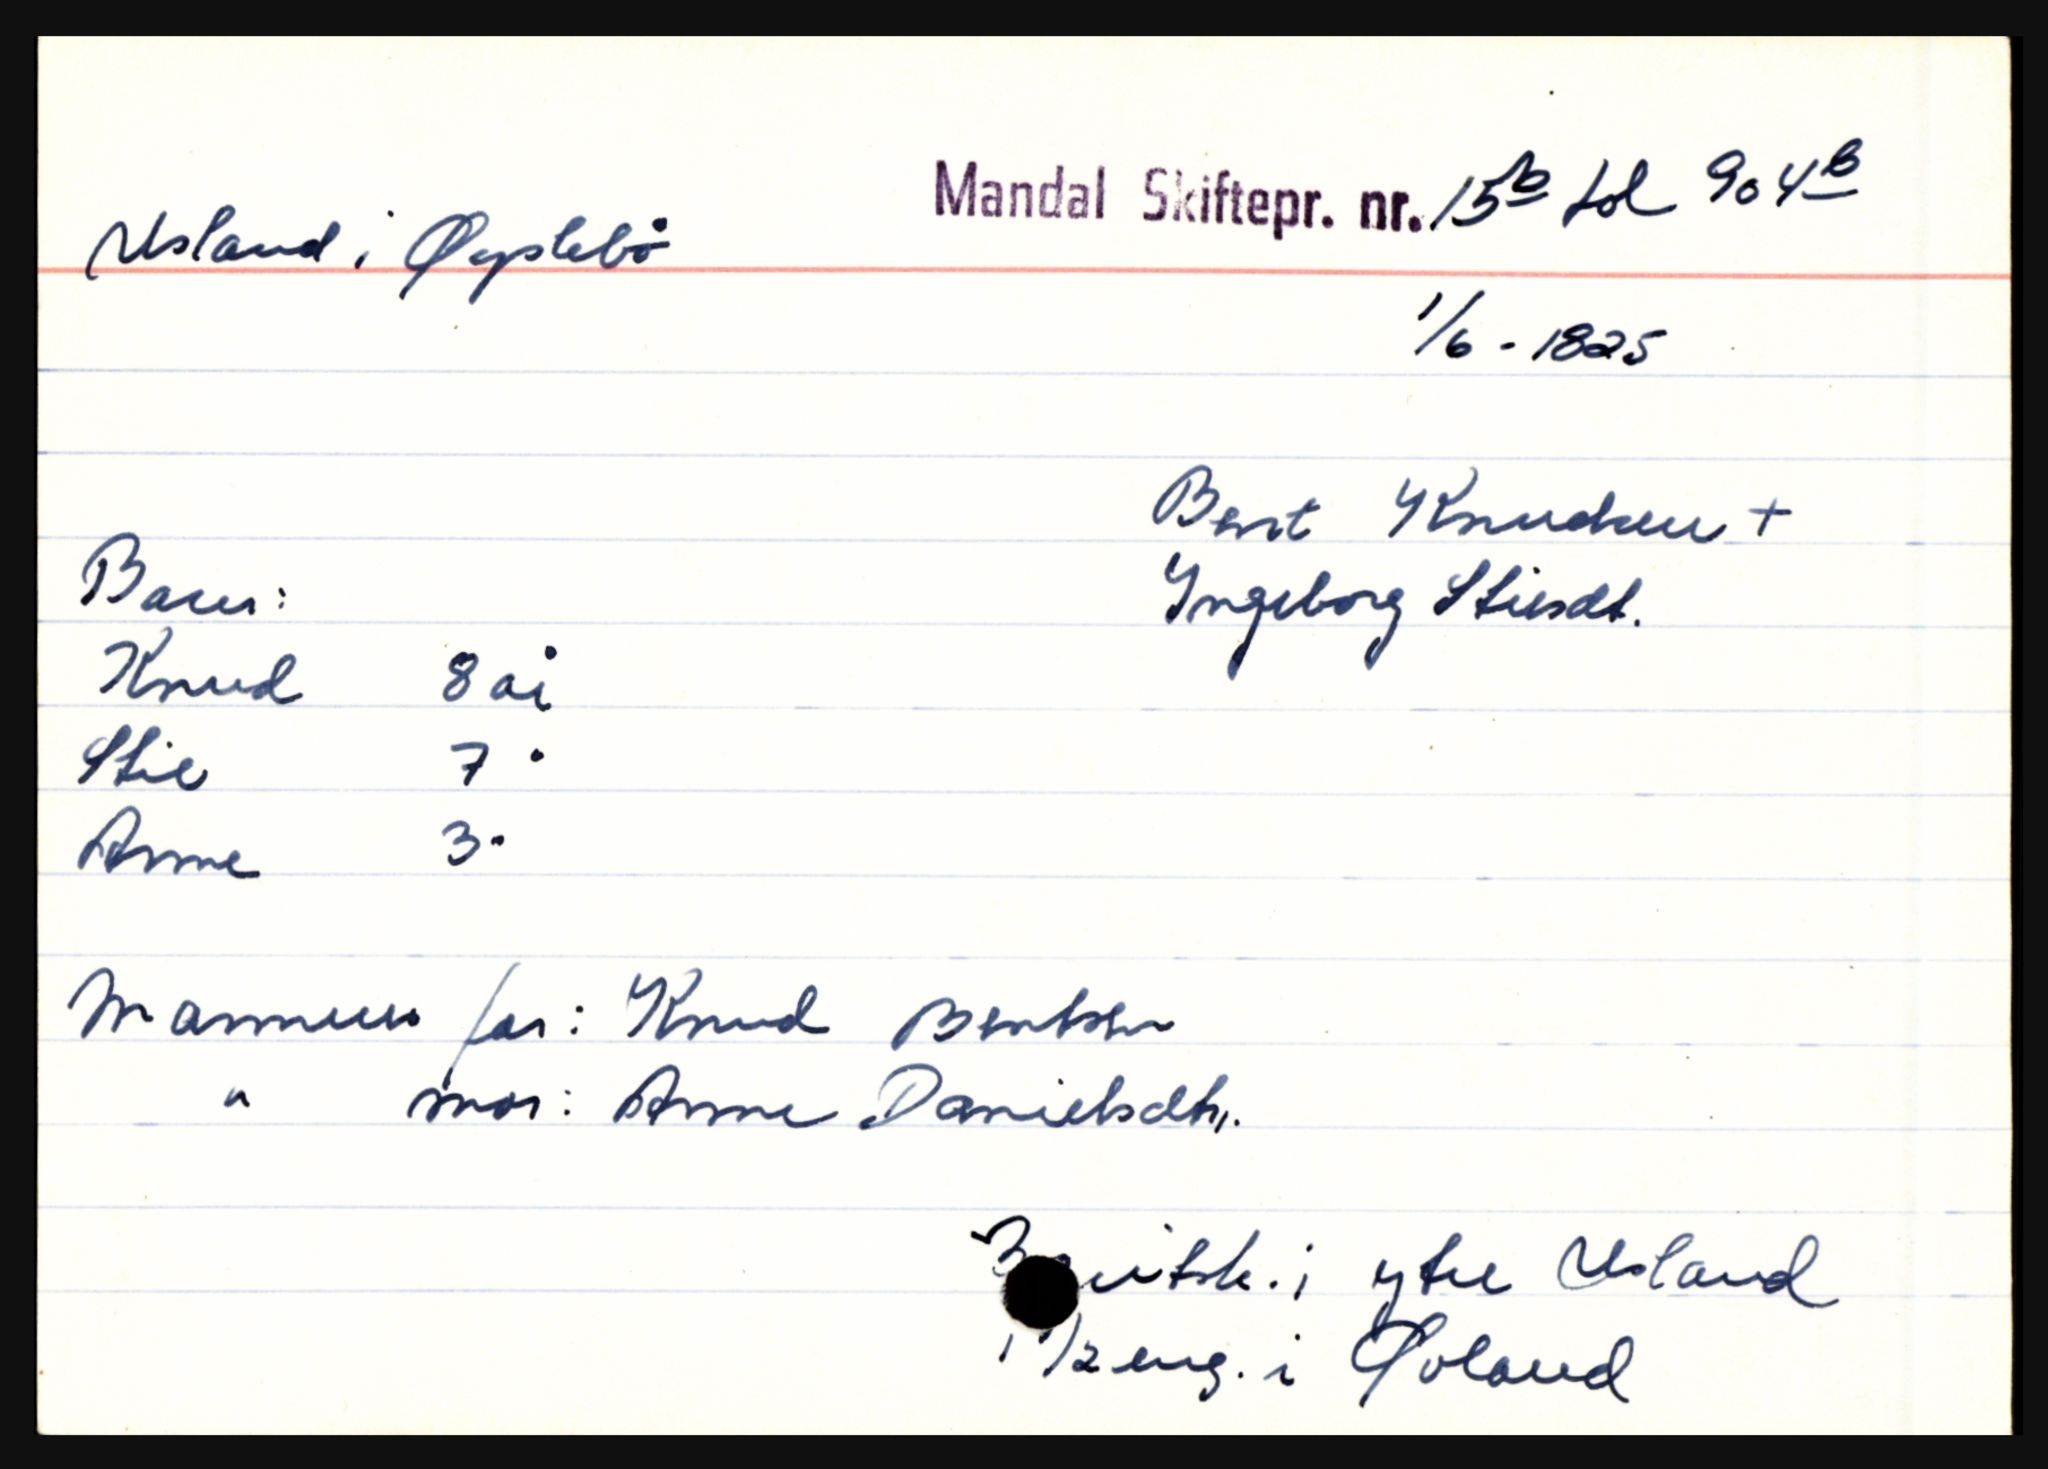 Mandal Skiftepr. nr. 15b fol 904B
Usland i Øyslebø
1/6 - 1825
Bent Knudsen +
Barn:
Ingeborg Stiesdt.
Knud 8 år
Stie 7 "
Anne 3 "
Mannens far: Knud Bentsen
" mor: Anne Danielsdtr.
3 i ytre Usland
1 1/2 eng. i Øvland